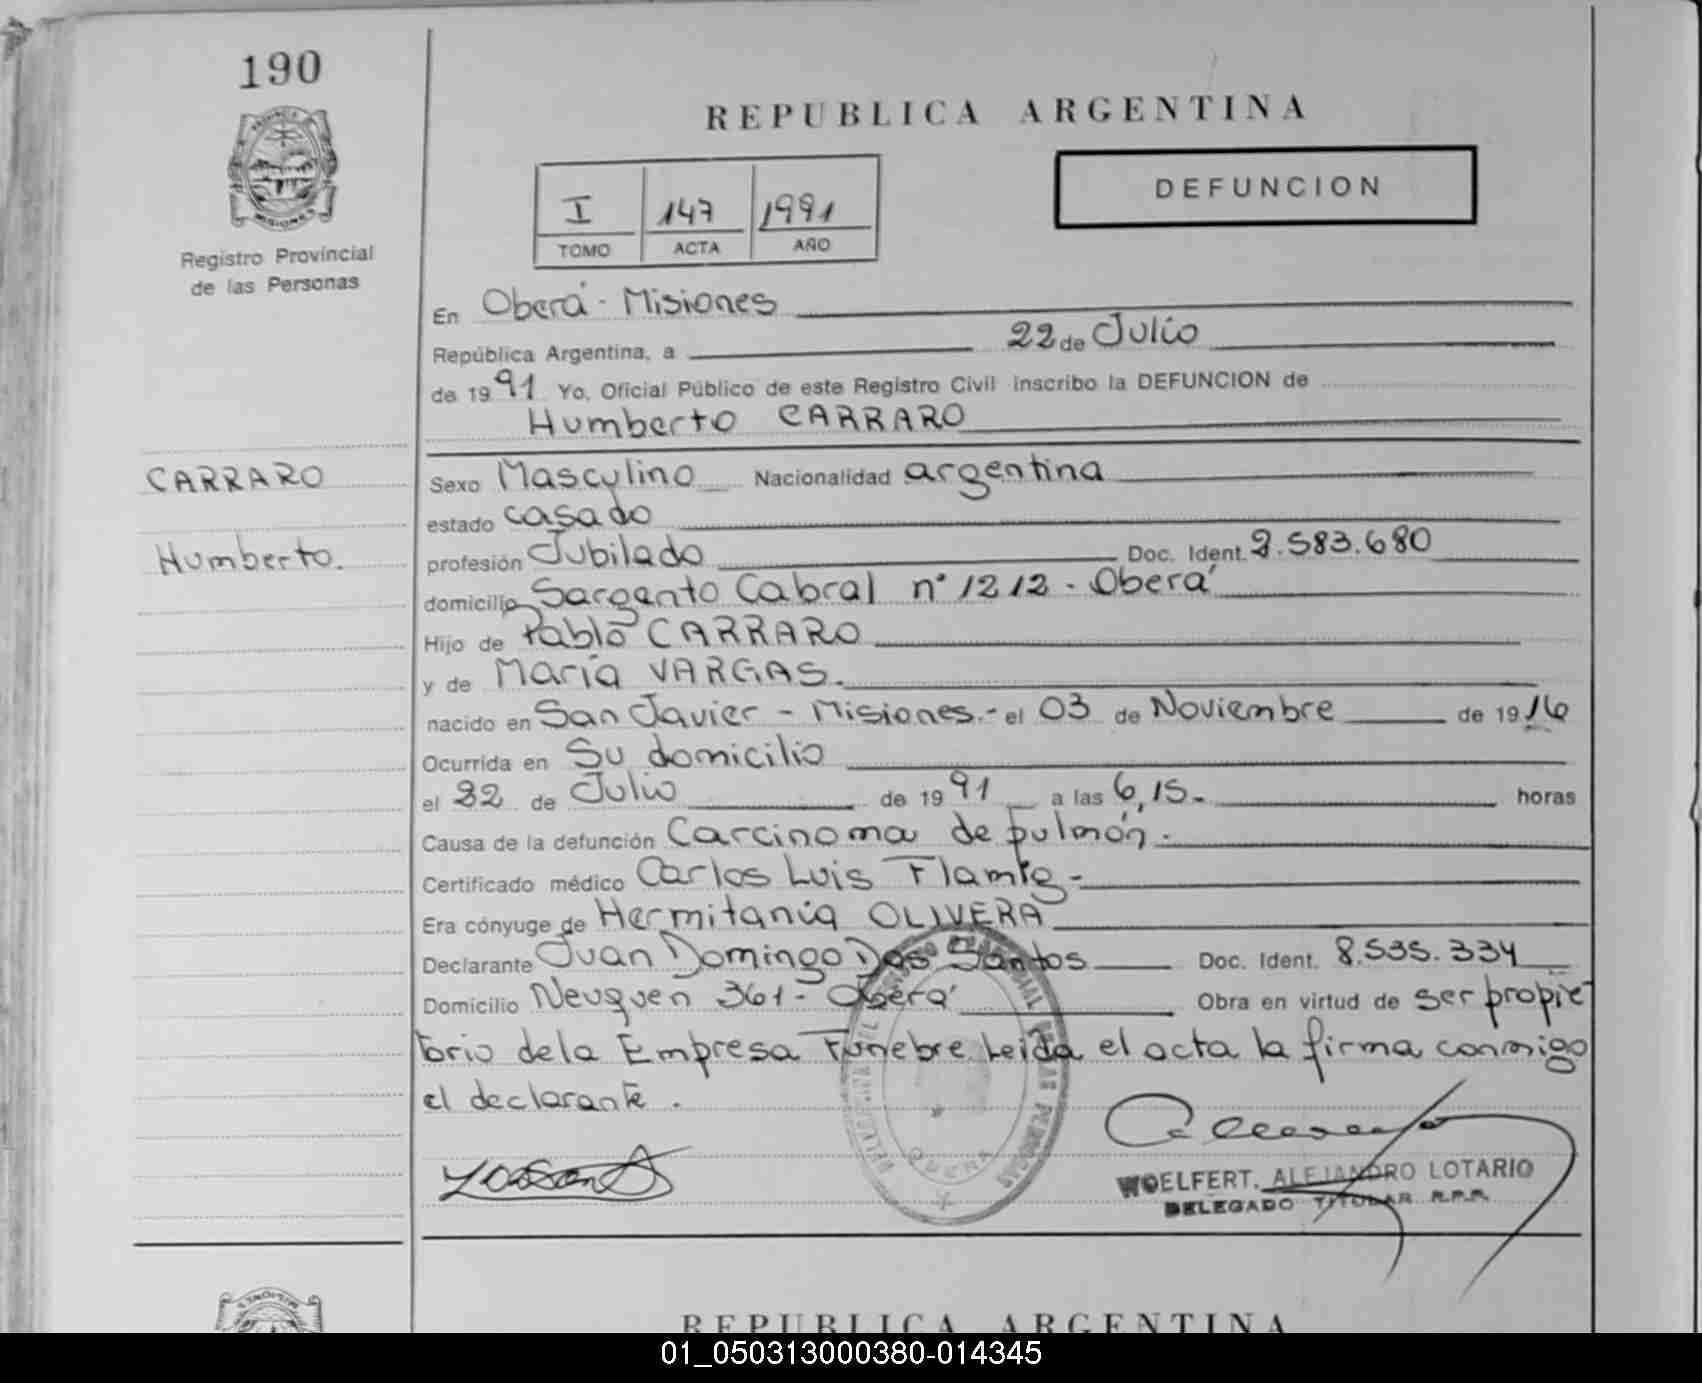 190
PROVINCIA
MISIONES
Registro Provincial
de las Personas
REPUBLICA ARGENTINA
I 147 1991
TOMO ACTA AÑO
DEFUNCION
En Oberá - Misiones
República Argentina, a 22 de Julio
de 1991 Yo, Oficial Público de este Registro Civil inscribo la DEFUNCION de
Humberto CARRARO
CARRARO
Humberto.
Sexo Masculino Nacionalidad argentina
estado casado
profesión Jubilado Doc. Ident. 2.583.680
domicilio Sargento Cabral n° 1212 - Oberá
Hijo de Pablo CARRARO
y de María VARGAS.
nacido en San Javier - Misiones.- el 03 de Noviembre de 1916
Ocurrida en Su domicilio
el 22 de Julio de 1991 a las 6,15.- horas
Causa de la defunción Carcinoma de pulmón.-
Certificado médico Carlos Luis
Era cónyuge de Hermitania OLIVERA
Declarante Juan Domingo Dos Santos Doc. Ident. 8.535.334
Domicilio Neuquen 361 - Oberá Obra en virtud de ser propie
tario de la Empresa Funebre Leida el acta la firma conmigo
el declarante.
OBERA
WOELFERT, ALEJANDRO LOTARIO
DELEGADO TITULAR R.P.P.
MISIONES
REPUBLICA ARGENTINA
01_050313000380-014345